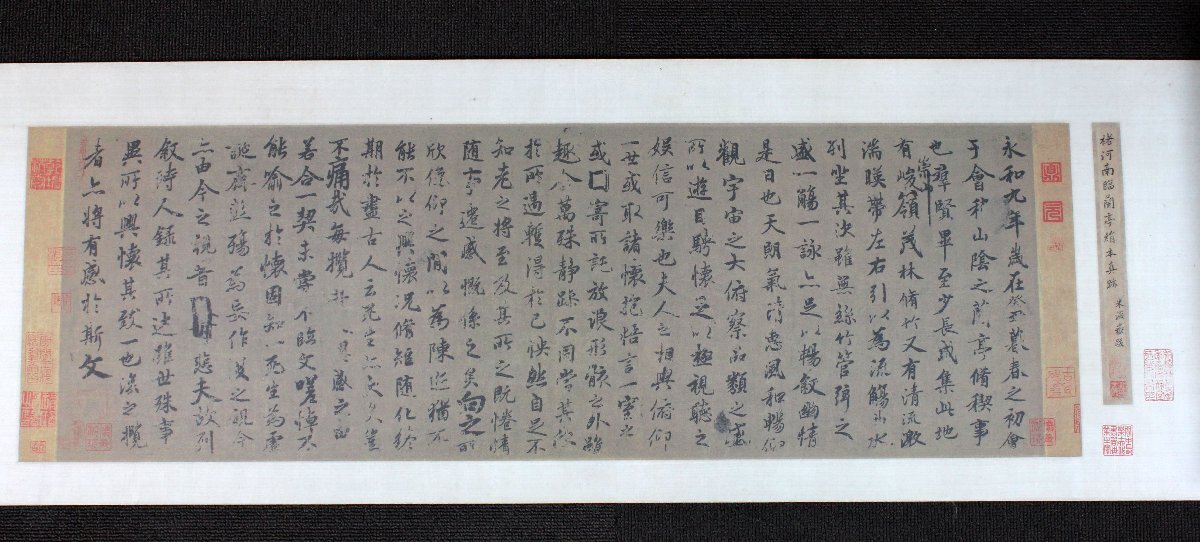 褚河南臨蘭亭絹本真跡 米海嶽跋
永和九年歲在癸丑暮春之初會
于會稽山陰之蘭亭脩稧事
也羣賢畢至少長咸集此地
有崇山峻嶺茂林脩竹又有清流激
湍暎帶左右引以為流觴曲水
列坐其次雖無絲竹管弦之
盛一觴一詠亦足以暢敘幽情
是日也天朗氣清惠風和暢仰
觀宇宙之大俯察品類之盛
所以遊目騁懷足以極視聽之
娛信可樂也夫人之相與俯仰
一世或取諸懷抱悟言一室之
或因寄所託放浪形骸之外雖
趣舍萬殊静躁不同當其欣
於所遇輙得於己怏然自足不
知老之將至及其所之既惓情
隨事遷感慨係之矣向之所
欣俛仰之閒以為陳迹猶不
能不以之興懷況脩短隨化終
期於盡古人云死生亦大矣豈
不痛哉每攬昔人興感之由
若合一契未嘗不臨文嗟悼不
能喻之於懷固知一死生為虛
誕齊彭殤為妄作後之視今
亦由今之視昔悲夫故列
敘時人錄其所述雖世殊事
異所以興懷其致一也後之攬
者亦將有感於斯文